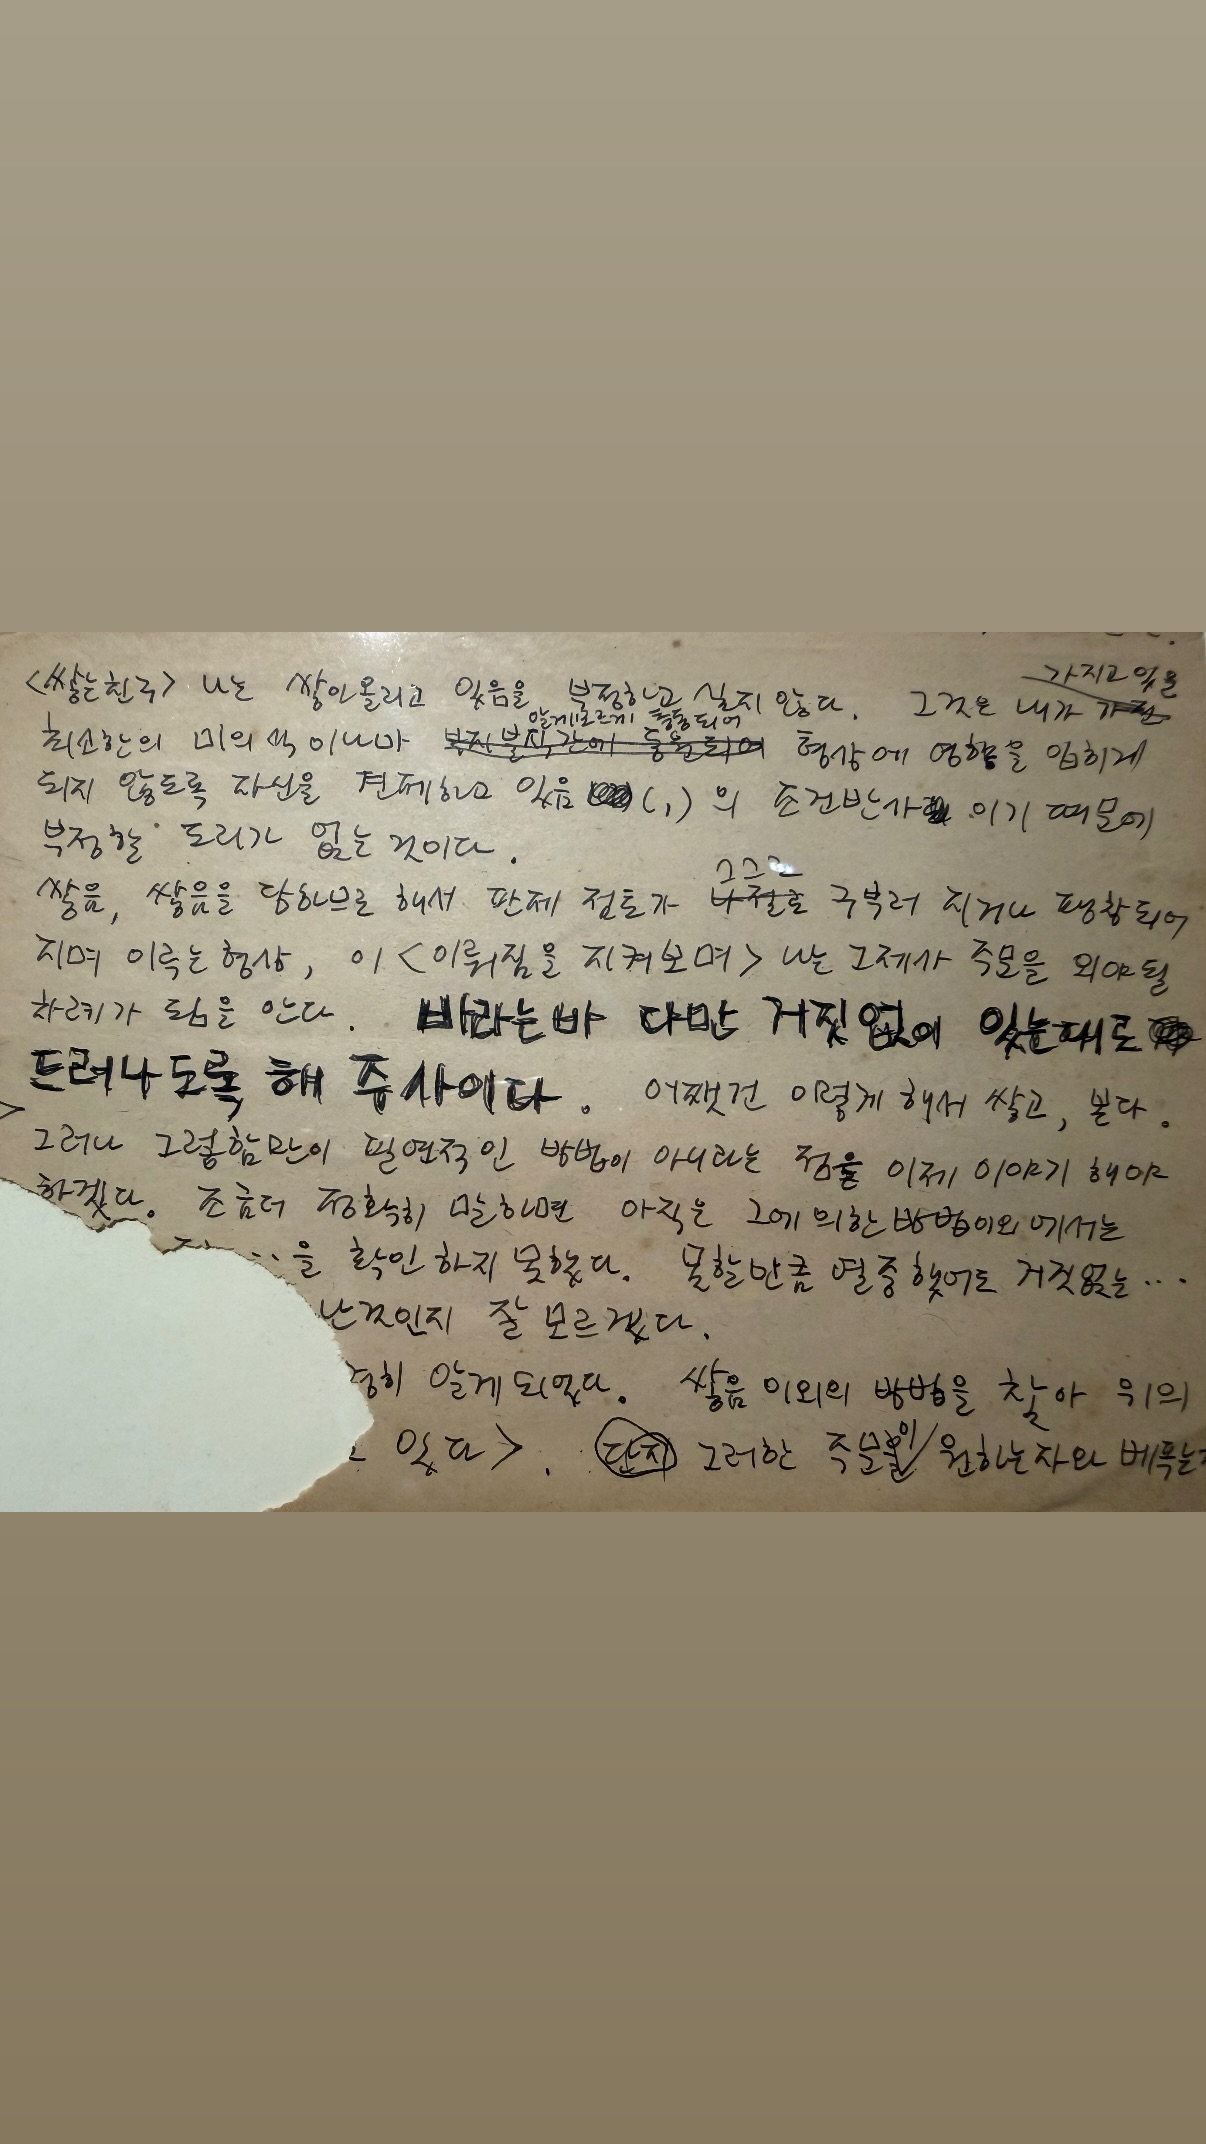 가지고 있을
<쌓는친구> 나는 쌓아올리고 있음을 부정하고 싶지 않다. 그것은 내가 가진
알게모르게 동동되어
최소한의 미의식 이나마 부지불식간에 동원되어 형상에 영향을 입히게
되지 않도록 자신을 견페하고 있음 (,) 의 조건반사 이기 때문에
부정할 도리가 없는 것이다.
그그로
쌓음, 쌓음을 당하므로 해서 판제 점토가 구부러 지거나 팽창되어
지며 이룩는 형상, 이 <이뤄짐을 지켜보며> 나는 그제사 주문을 외야될
차례가 됨을 안다. 바라는바 다만 거짓없이 있는대로
드러나도록 해 주사이다. 어쨋건 이렇게 해서 쌓고, 본다.
그러나 그렇함만이 필연적인 방법이 아니라는 점을 이제 이야기 해야
하겠다. 조금더 정확히 말하면 아직은 그에 의한 방법이외 에서는
..을 확인 하지 못했다. 못할만큼 열중했어도 거짓없는...
난것인지 잘 모르겠다.
히 알게 되었다. 쌓음 이외의 방법을 찾아 위의
있다>. 단지 그러한 주문이 원하는자와 베푸는